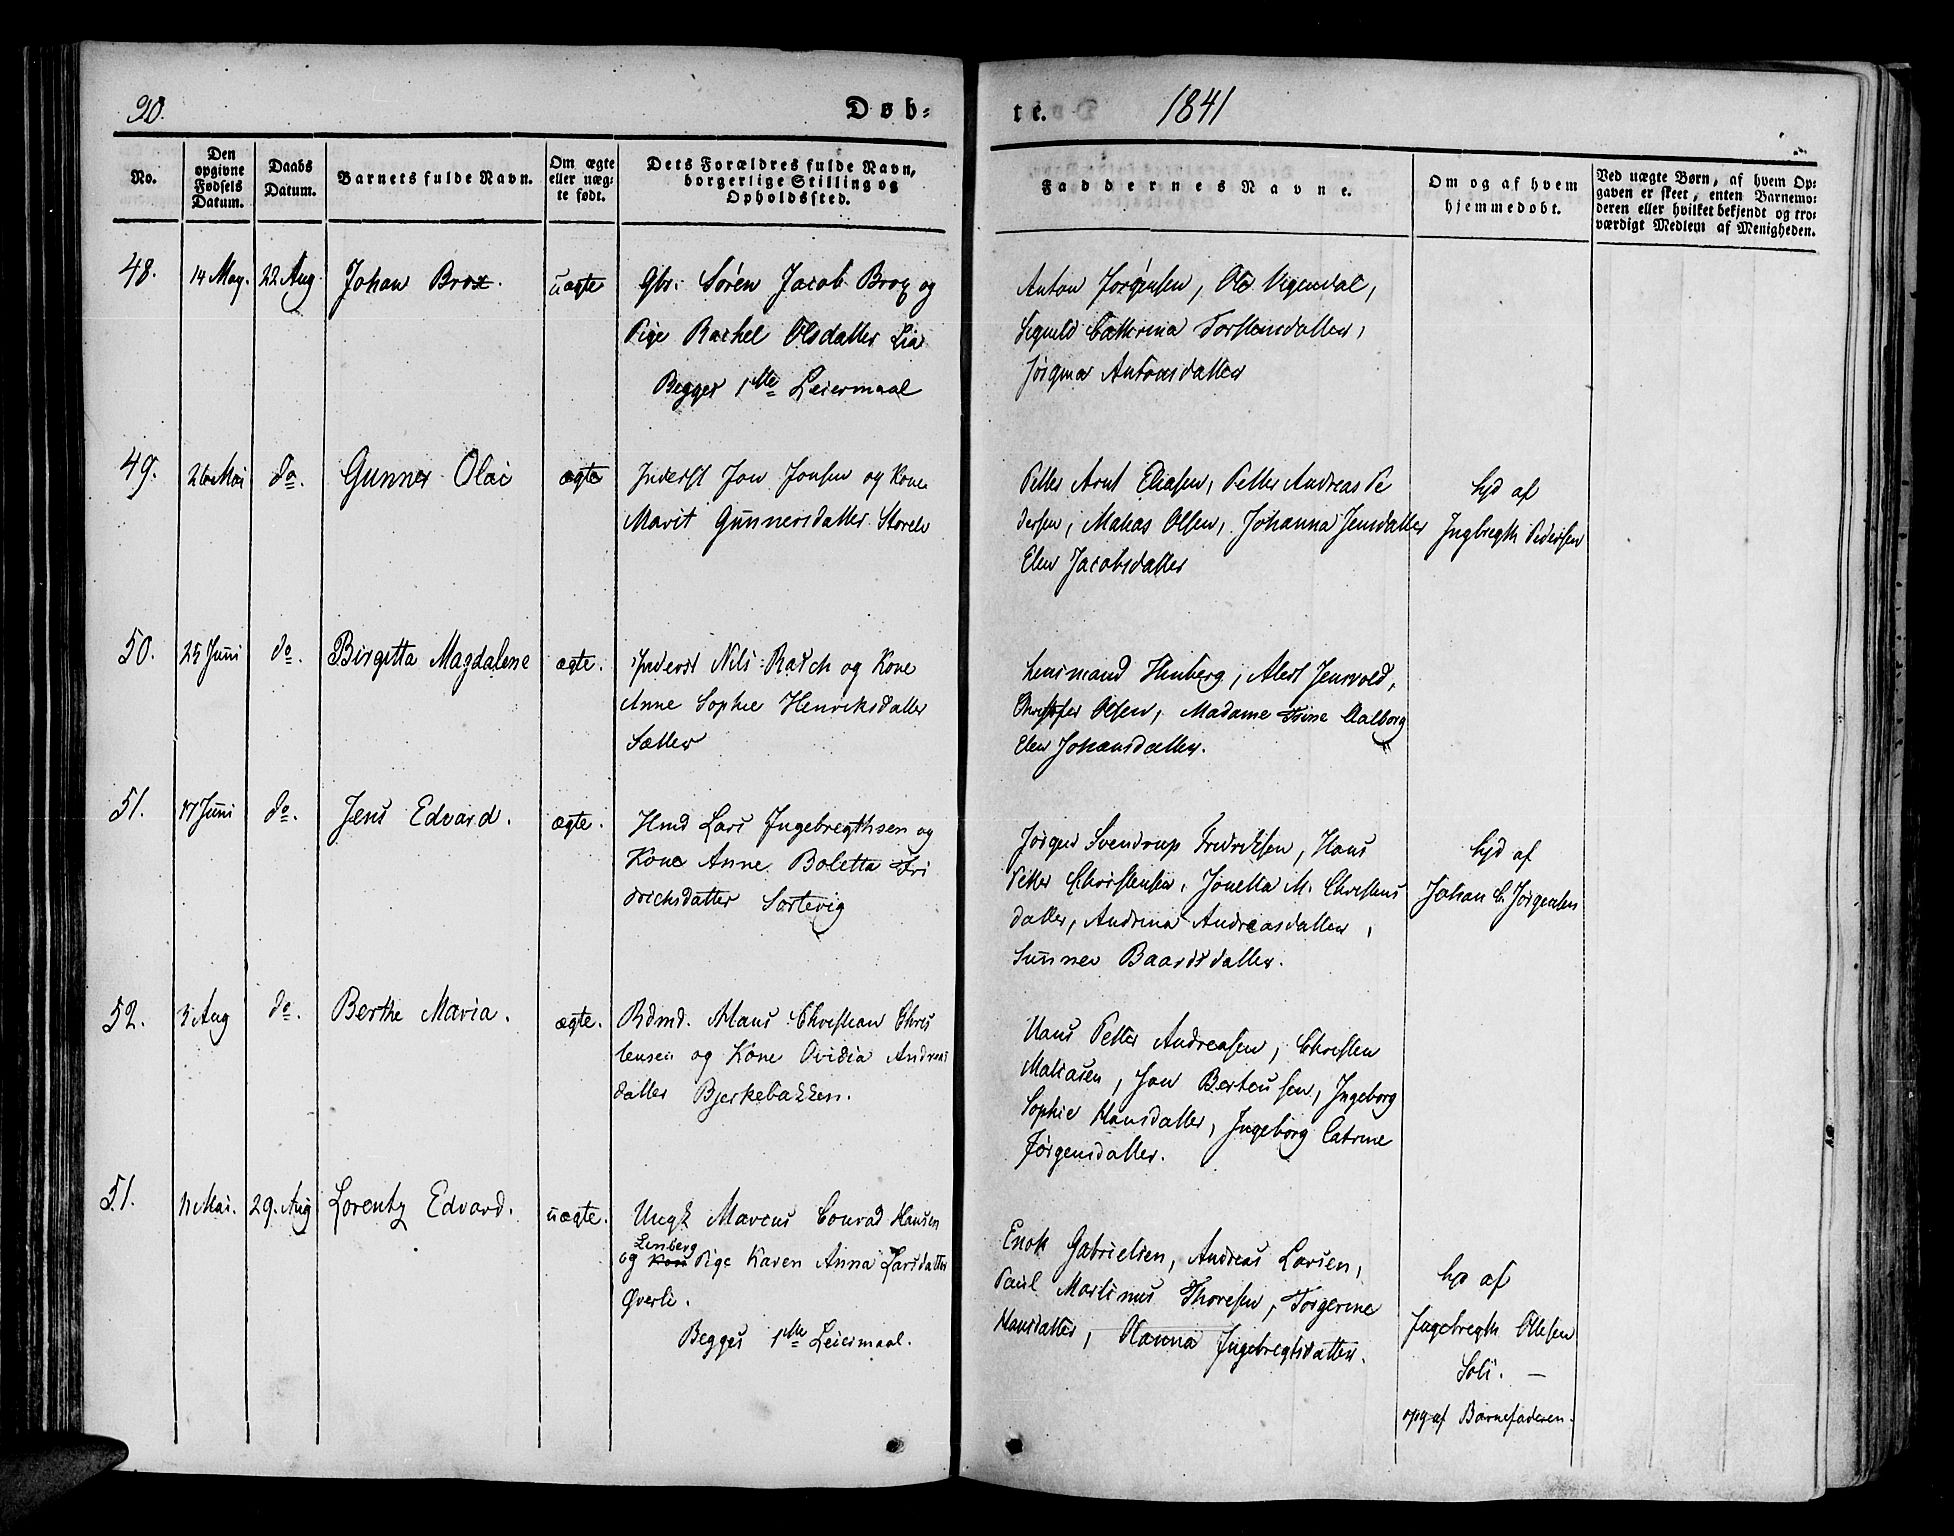 90.
Døb-
te.
1841
No.
Den opgivne Fødsels Datum.
Daabs Datum.
Barnets fulde Navn.
Om ægte eller uæg-te født.
Dets Forældres fulde Navn, borgerlige Stilling og Opholdssted.
Faddernes Navne.
Om og af hvem hjemmedøbt.
Ved uægte Børn, af hvem Op-
gaven er skeet, enten Barnemo-
deren eller hvilket bekjendt og tro-
værdigt Medlem af Menigheden.
48. 14 May. 22 Aug Johan Brox. uægte Gbr: Søren Jacob Brox og
Pige Rachel Olsdatter Lia
Begges 1ste Leiermaal
Anton Jørgensen, Ole
Cathrina Torstensdatter,
Antonsdatter
49. 26 Mai do. Gunner Olai ægte Inderst Jon Jonsen og Kone
Marit Gunnersdatter Storelv
Petter Arnt Eliasen, Petter Andreas Pe
dersen, Olsen, Johanna Jensdatter
Elen Jacobsdatter
hjd af
Ingbregth Pedersen
50. 25 Juni do. Birgitta Magdalene ægte. Inderst Nils Rasch og Kone
Anne Sophie Henriksdatter
Sætter
Lensmand Olsen, Madame Trine Aalborg
Elen Johansdatter.
51. 17 Juni do. Jens Edvard. ægte. Hmd Lars Ingebregthsen og
Kone Anne Boletta Fri
drichsdatter Sørtevig
Jørgen Svendrup Fredriksen, Hans
Petter Christensen, Jonetta M. Christens
datter, Andrina Andreasdatter,
Sunnev Baardsdatter.
hjd af
Johan C. Jørgensen
52. 3 Aug do. Berthe Maria. ægte. Rdmd. Hans Christian Chris
tensen og Kone Ovidia Andreas
datter Bjerkebakken.
Hans Petter Andreasen, Christen
Matiasen, Jon Berteussen, Ingeborg
Sophie Hansdatter, Ingeborg Catrine
Jørgensdatter.
51. 11 Mai. 29. Aug Lorentz Edvard. uægte. Ungk Marcus Conrad Hansen
Lenberg
og Kone Pige Karen Anna Larsdatter
Øverli.
Begges 1ste Leiermaal.
Enok Gabrielsen, Andreas Larsen,
Paul Martinus Thoresen, Torgerine
Hansdatter, Hanna Ingebregtsdatter.
hjd af
Ingebregth Ollesen
Soli. —
opg af Barnefaderen.